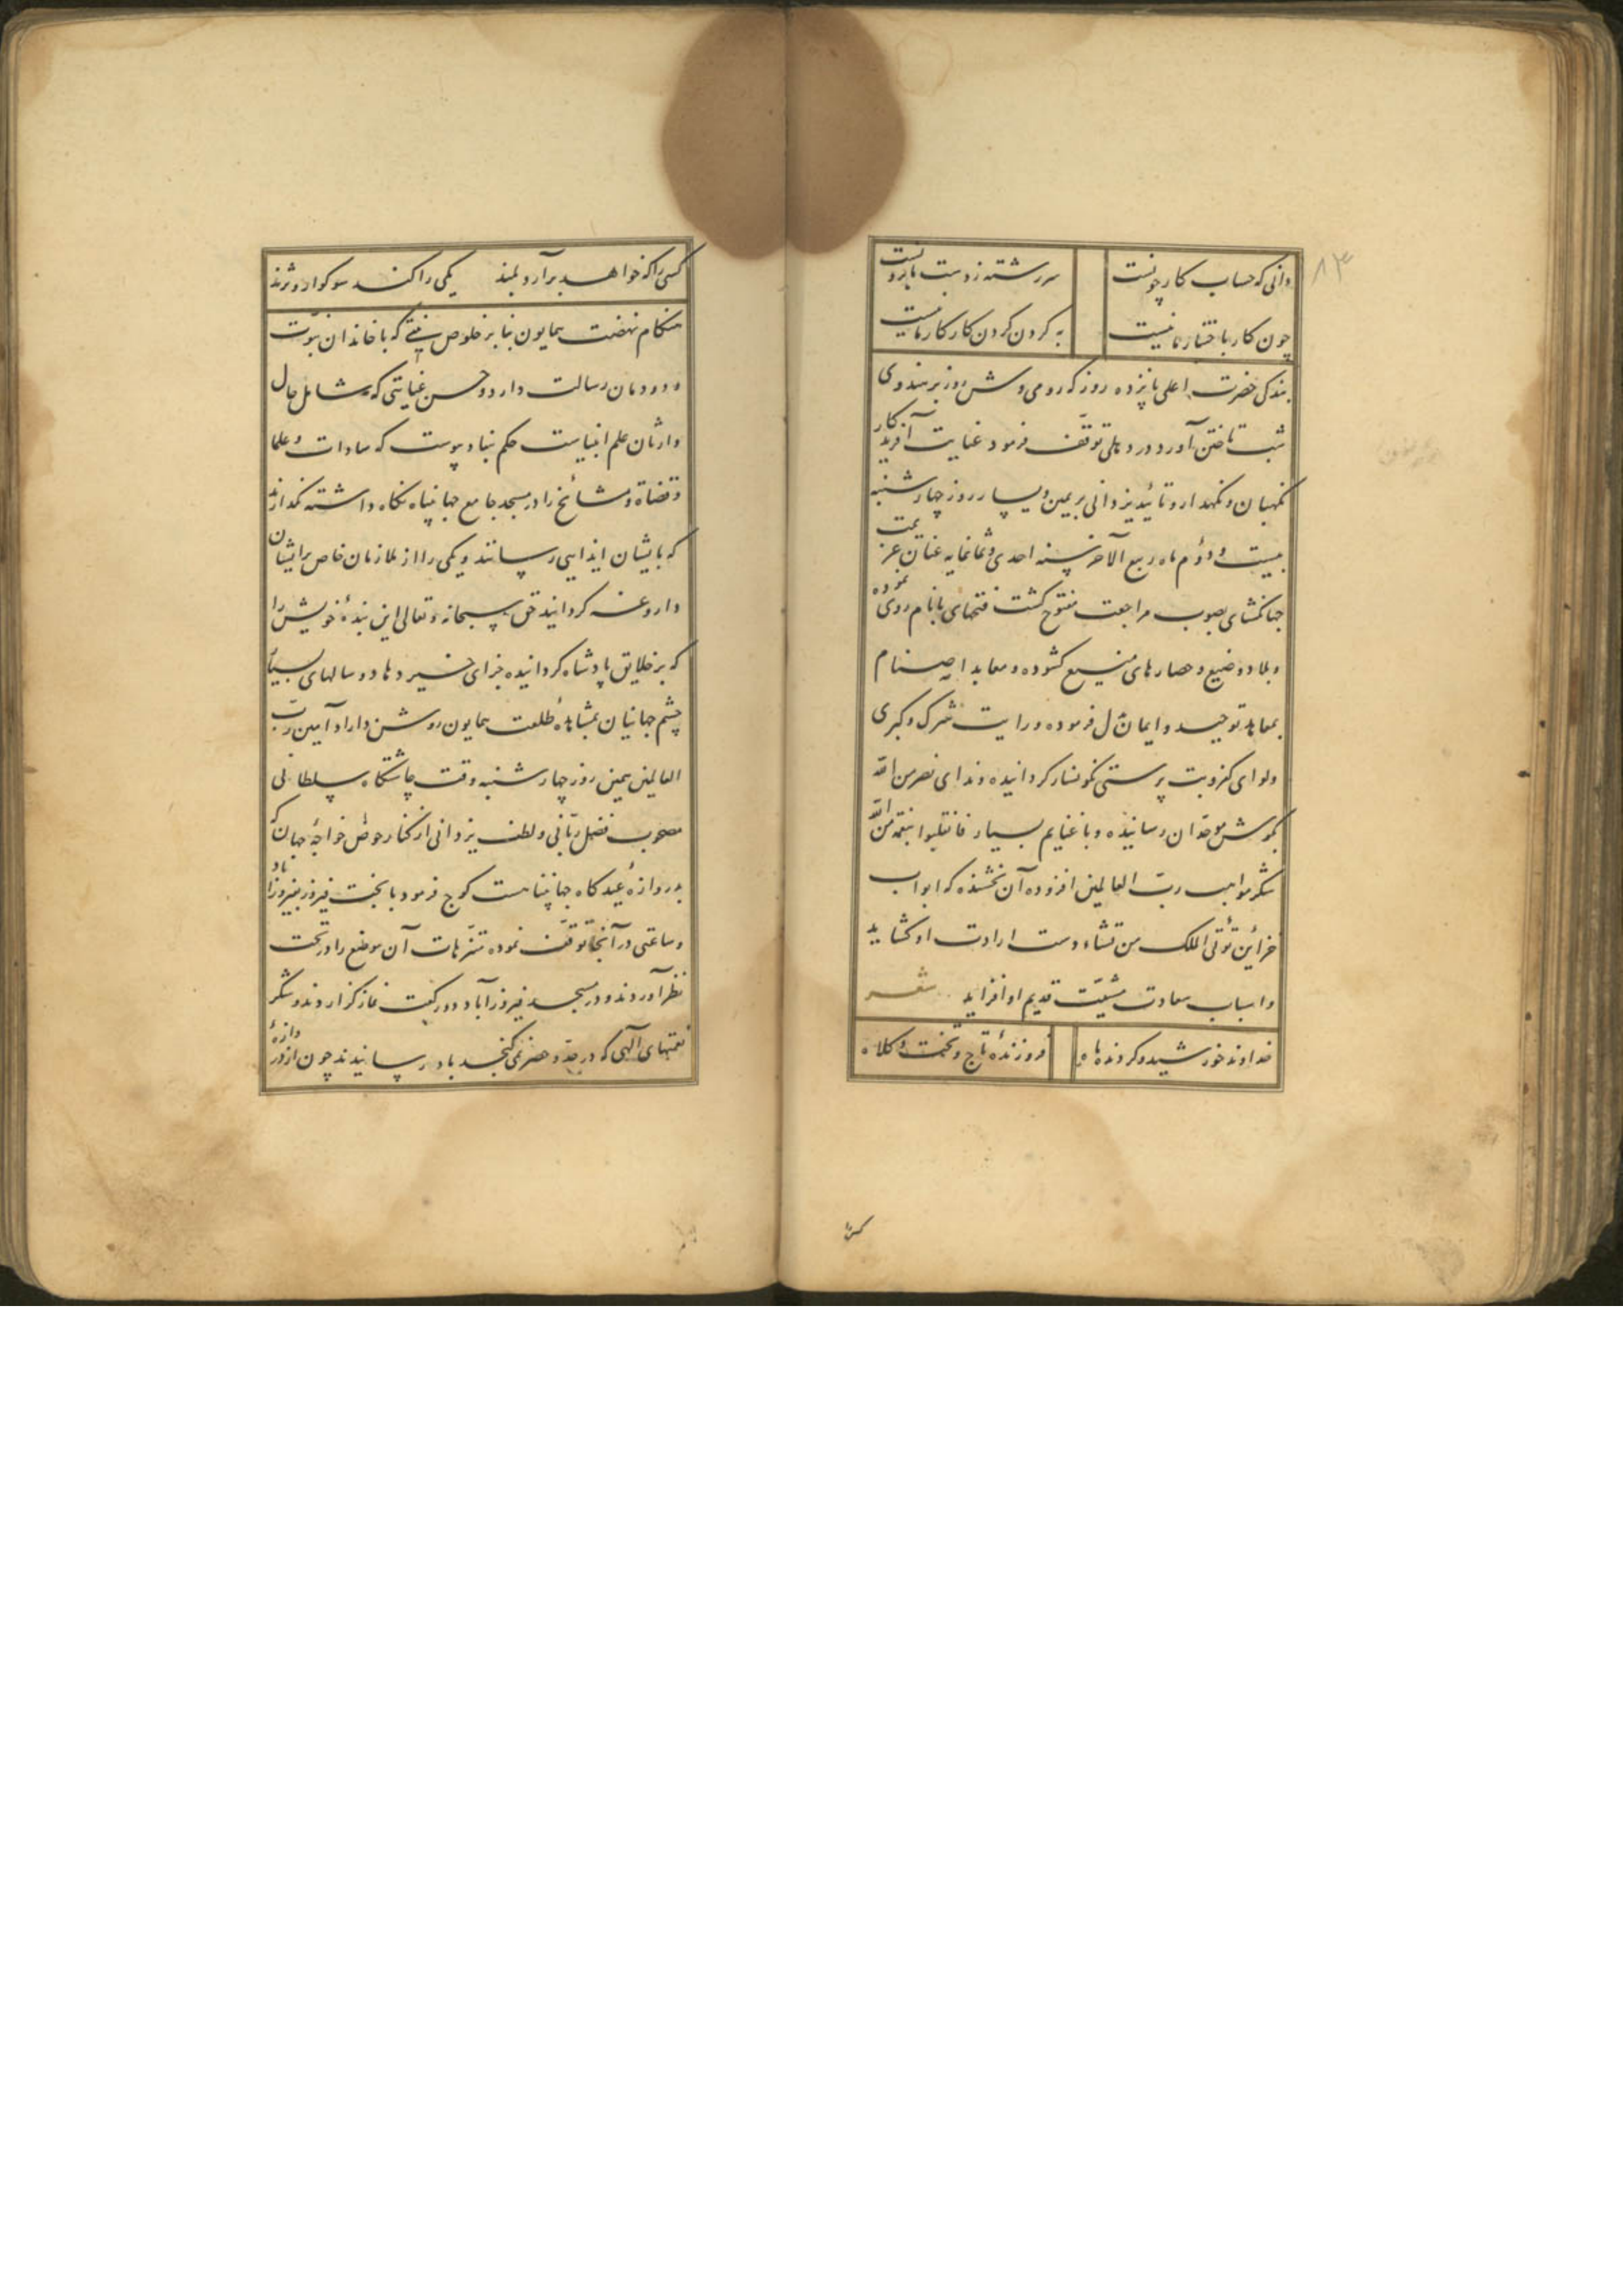 ۸۳
دانی که حساب کار چونست سر رشته ز دست ما برونست
چون کار باختیار ما نیست به کردن کردن کار کار ما نیست
بندکی حضرت اعلی پانزده روز که رومی وش روز بر هندوی
شب تاختن آورد در دهلی توقف فرمود عنایت آفریدکار
نکهبان و نکهدار و تائید یزدانی بر یمین و یسار روز چهارشنبه
بیست و دوم ماه ربیع الآخر سنه احدی و ثمانمایه عنان عزیمت
جهانکشای بصوب مراجعت مفتوح کشت فتحهای بانام روی نموده
و بلاد وضیع و حصارهای منیع کشوده و معابد اصنام
بمعابد توحید و ایمان ل فرموده و رایت شرک و کبری
ولوای کفر و بت پرستی نکونسار کردانیده و ندای نصر من الله
بکوش موحدان رسانیده و با غنایم بسیار فانقلبوا بنعمة من الله
شکر مواهب رب العالمین افزوده آن بخشنده که ابواب
خزاین تؤتی الملک من تشاء دست ارادت او کشاید
و اسباب سعادت مشیت قدیم او افزاید شعر
خداوند خورشید و کردنده ماه فروزندهٔ تاج و تخت و کلاه
کسی را که خواهد برآرد بلند یکی را کند سوکوار و نژند
هنکام نهضت همایون بنا بر خلوص نیتی که با خاندان نبوت
و دودمان رسالت دارد و حسن عنایتی که شامل حال
وارثان علم انبیاست حکم بنیاد پیوست که سادات و علما
و قضاة و مشائخ را در مسجد جامع جهانپناه نکاه داشته نکذارند
که بایشان ایذایی رسانند و یکی را از ملازمان خاص بر ایشان
داروغه کردانید حق سبحانه و تعالی این بندهٔ خویش را
که بر خلایق پادشاه کردانیده جزای خیر دهاد و سالهای بسیار
چشم جهانیان بمشاهدهٔ طلعت همایون روشن داراد آمین رب
العالمین یمین روز چهارشنبه وقت چاشتکاه سلطانی
مصحوب فضل ربانی و لطف یزدانی از کنار حوض خواجهٔ جهان که
بدروازهٔ عیدکاه جهانپناهست کوچ فرمود با بخت فیروز بفیروزاباد
و ساعتی در آنجا توقف نموده تنزهات آن موضع را در تحت
نظر آوردند و در مسجد فیروزآباد دو رکعت نماز کزاردند و شکر
نعمتهای آلهی که در حد و حصر نمی کنجد بادا رسانیدند چون از دروازهٔ